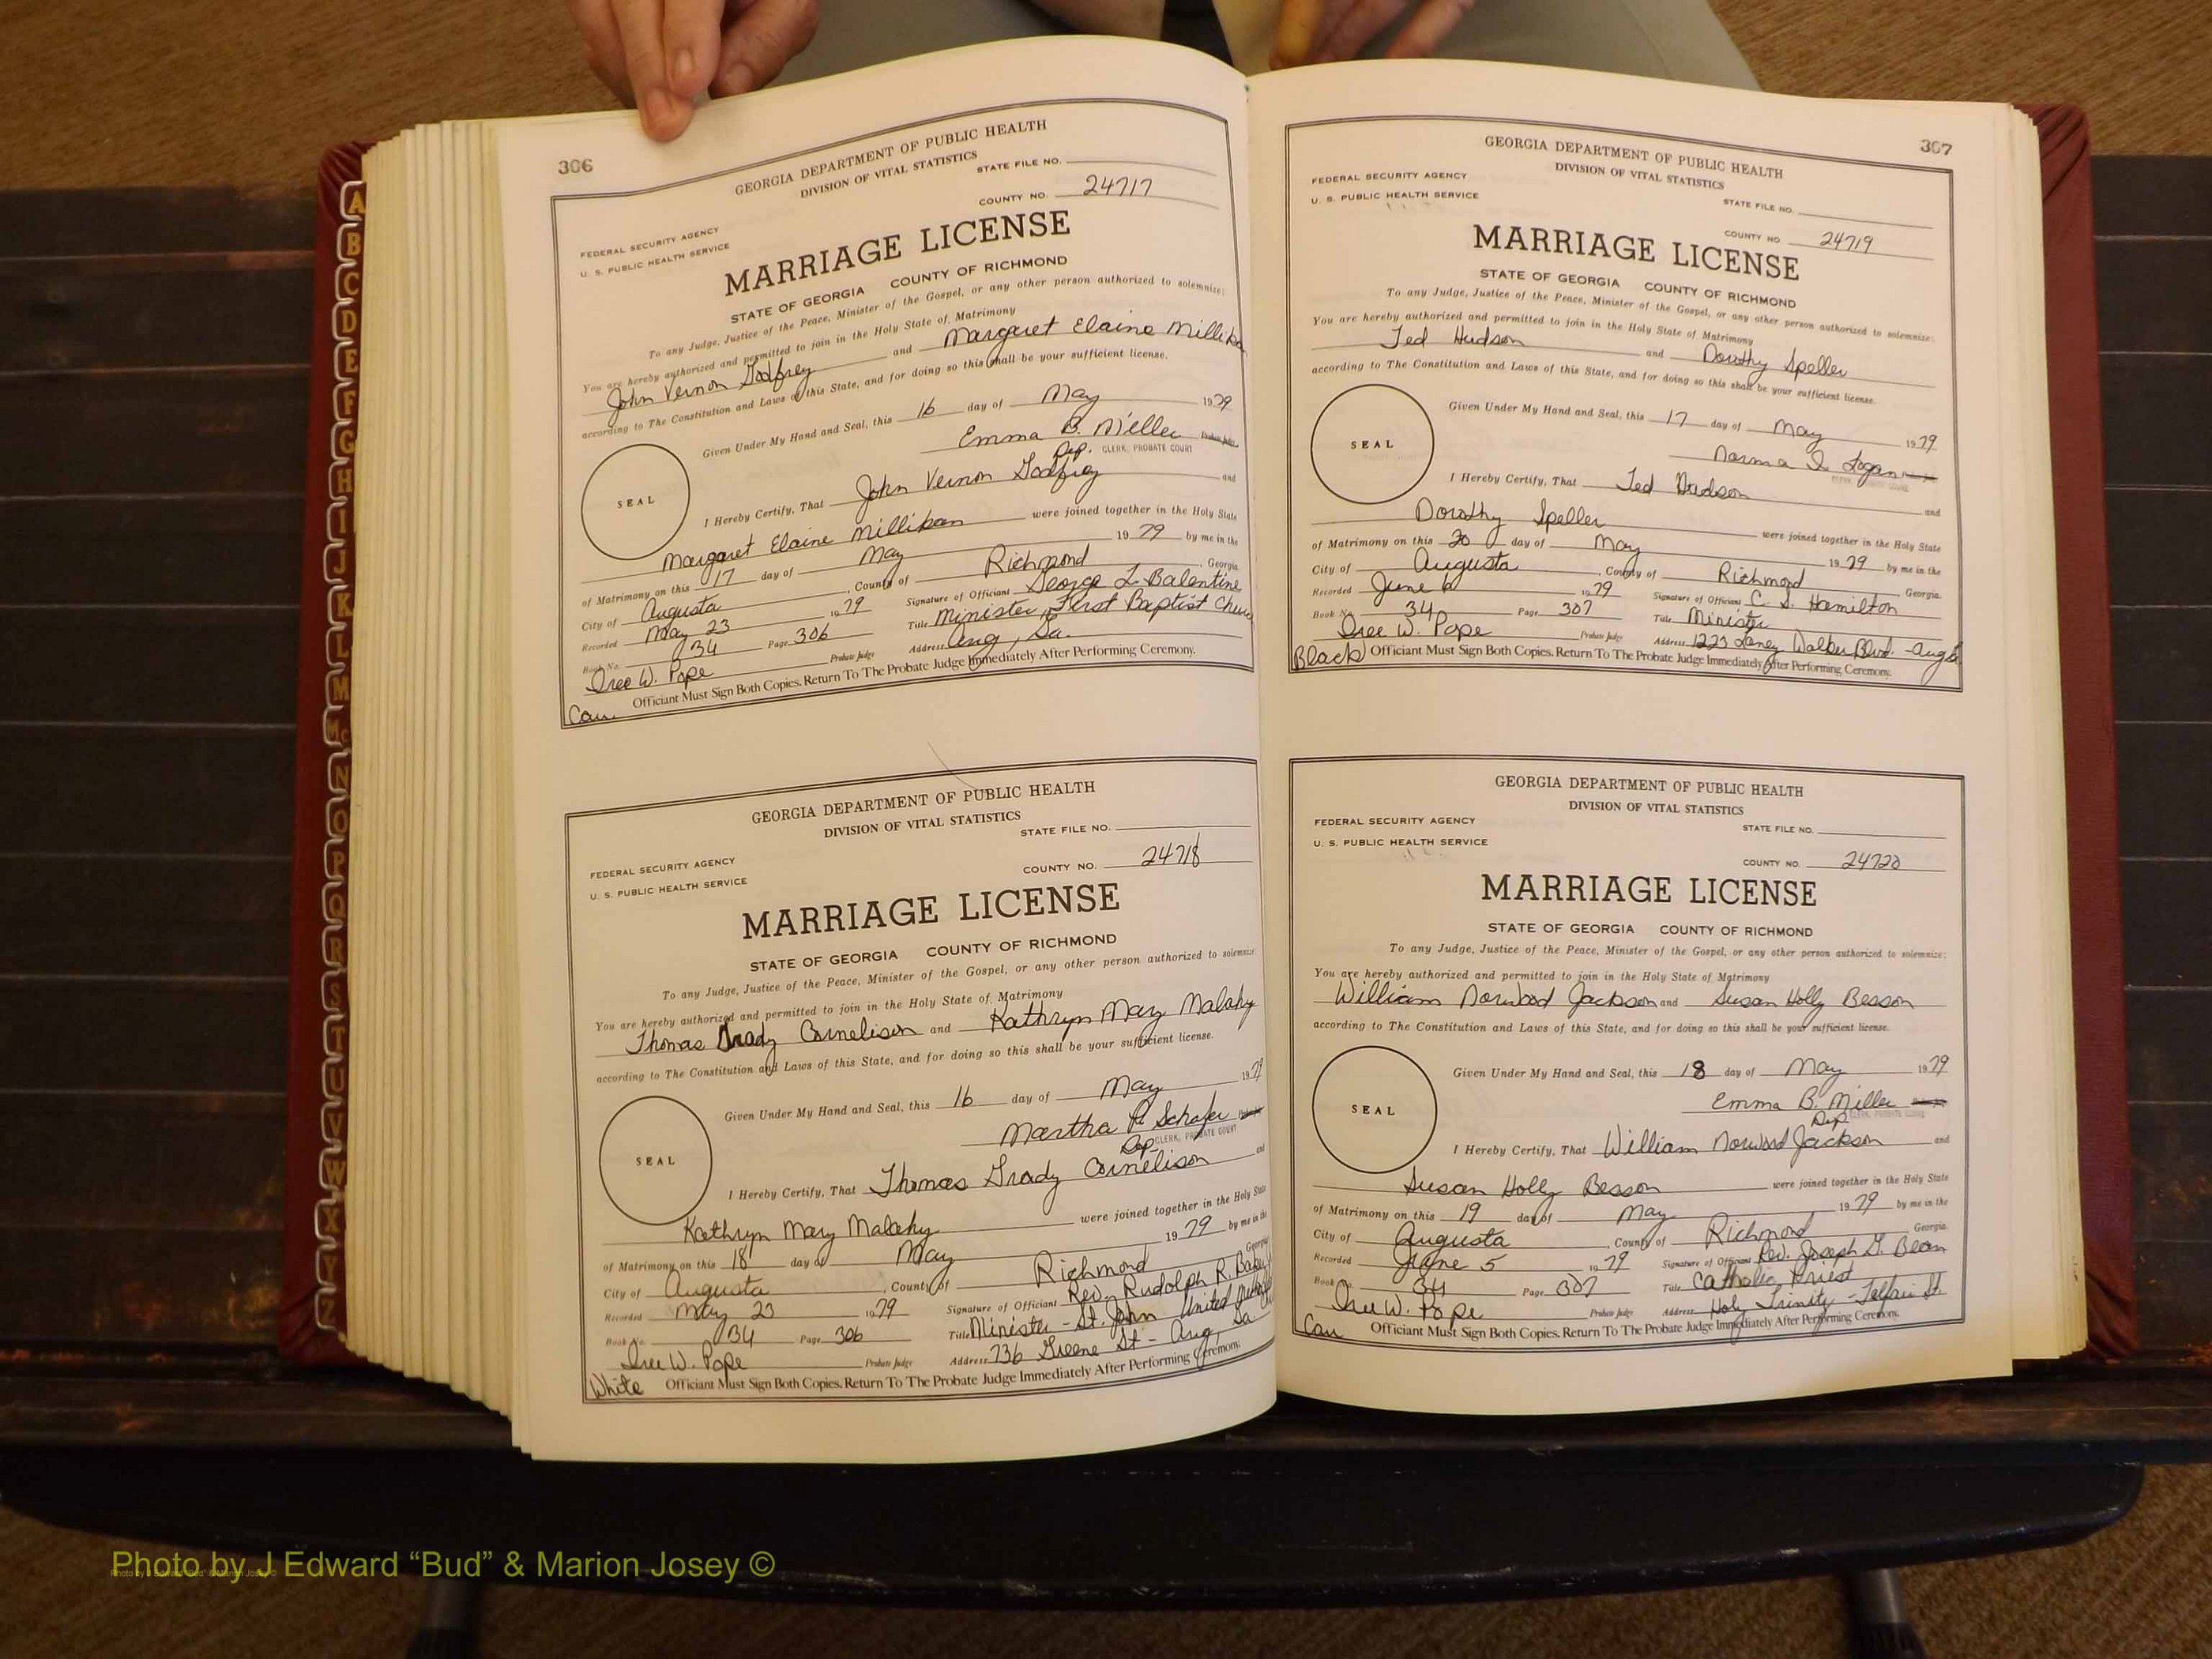 306
GEORGIA DEPARTMENT OF PUBLIC HEALTH
DIVISION OF VITAL STATISTICS
STATE FILE NO.
COUNTY NO. 24717
FEDERAL SECURITY AGENCY
U. S. PUBLIC HEALTH SERVICE
MARRIAGE LICENSE
STATE OF GEORGIA COUNTY OF RICHMOND
To any Judge, Justice of the Peace, Minister of the Gospel, or any other person authorized to solemnize:
You are hereby authorized and permitted to join in the Holy State of Matrimony
John Vernon Godfrey and Margaret Elaine Millikan
according to The Constitution and Laws of this State, and for doing so this shall be your sufficient license.
Given Under My Hand and Seal, this 16 day of May 1979
SEAL
Emma B. Miller Probate Judge
Dep. CLERK, PROBATE COURT
I Hereby Certify, That John Vernon Godfrey and
Margaret Elaine Millikan were joined together in the Holy State
of Matrimony on this 17 day of May 1979 by me in the
City of Augusta, County of Richmond, Georgia
Recorded May 23 1979 Signature of Officiant George L. Balentine
Book No. 34 Page 306 Title Minister, First Baptist
Iree W. Pope Probate Judge Address Aug, Ga.
Cau. Officiant Must Sign Both Copies. Return To The Probate Judge Immediately After Performing Ceremony.
GEORGIA DEPARTMENT OF PUBLIC HEALTH
DIVISION OF VITAL STATISTICS
STATE FILE NO.
COUNTY NO. 24718
FEDERAL SECURITY AGENCY
U. S. PUBLIC HEALTH SERVICE
MARRIAGE LICENSE
STATE OF GEORGIA COUNTY OF RICHMOND
To any Judge, Justice of the Peace, Minister of the Gospel, or any other person authorized to solemnize:
You are hereby authorized and permitted to join in the Holy State of Matrimony
Thomas Grady Cornelison and Kathryn Mary Malahy
according to The Constitution and Laws of this State, and for doing so this shall be your sufficient license.
Given Under My Hand and Seal, this 16 day of May 1979
SEAL
Martha P. Schafer
Dep CLERK, PROBATE COURT
I Hereby Certify, That Thomas Grady Cornelison and
Kathryn Mary Malahy were joined together in the Holy State
of Matrimony on this 18 day of May 1979 by me in the
City of Augusta, County of Richmond Georgia
Recorded May 23 1979 Signature of Officiant Rev. Rudolph R. Baker
Book No. 34 Page 306 Title Minister - St. John United
Iree W. Pope Probate Judge Address 736 Greene St - Aug, Ga
White Officiant Must Sign Both Copies. Return To The Probate Judge Immediately After Performing Ceremony.
307
GEORGIA DEPARTMENT OF PUBLIC HEALTH
DIVISION OF VITAL STATISTICS
FEDERAL SECURITY AGENCY
U. S. PUBLIC HEALTH SERVICE
STATE FILE NO.
COUNTY NO. 24719
MARRIAGE LICENSE
STATE OF GEORGIA COUNTY OF RICHMOND
To any Judge, Justice of the Peace, Minister of the Gospel, or any other person authorized to solemnize:
You are hereby authorized and permitted to join in the Holy State of Matrimony
Ted Hudson and Dorothy Speller
according to The Constitution and Laws of this State, and for doing so this shall be your sufficient license.
Given Under My Hand and Seal, this 17 day of May 1979
SEAL
Norma I. Logan
CLERK, PROBATE COURT
I Hereby Certify, That Ted Hudson and
Dorothy Speller were joined together in the Holy State
of Matrimony on this 20 day of May 1979 by me in the
City of Augusta, County of Richmond Georgia.
Recorded June 6 1979 Signature of Officiant C. S. Hamilton
Book No. 34 Page 307 Title Minister
Iree W. Pope Probate Judge Address 1223 Laney Walker Blvd. - Aug Ga
Black Officiant Must Sign Both Copies. Return To The Probate Judge Immediately After Performing Ceremony.
GEORGIA DEPARTMENT OF PUBLIC HEALTH
DIVISION OF VITAL STATISTICS
FEDERAL SECURITY AGENCY
U. S. PUBLIC HEALTH SERVICE
STATE FILE NO.
COUNTY NO. 24720
MARRIAGE LICENSE
STATE OF GEORGIA COUNTY OF RICHMOND
To any Judge, Justice of the Peace, Minister of the Gospel, or any other person authorized to solemnize:
You are hereby authorized and permitted to join in the Holy State of Matrimony
William Norwood Jackson and Susan Holly Besson
according to The Constitution and Laws of this State, and for doing so this shall be your sufficient license.
Given Under My Hand and Seal, this 18 day of May 1979
SEAL
Emma B. Miller
Dep CLERK, PROBATE COURT
I Hereby Certify, That William Norwood Jackson and
Susan Holly Besson were joined together in the Holy State
of Matrimony on this 19 day of May 1979 by me in the
City of Augusta, County of Richmond Georgia.
Recorded June 5 1979 Signature of Officiant Rev. Joseph G. Bean
Book No. 34 Page 307 Title Catholic Priest
Iree W. Pope Probate Judge Address Holy Trinity - Telfair St.
Cau Officiant Must Sign Both Copies. Return To The Probate Judge Immediately After Performing Ceremony.
A
B
C
D
E
F
G
H
I
J
K
L
M
Mc
N
O
P
Q
R
S
T
U
V
W
X
Y
Z
Photo by J Edward "Bud" & Marion Josey ©
Photo by J Edward "Bud" & Marion Josey ©